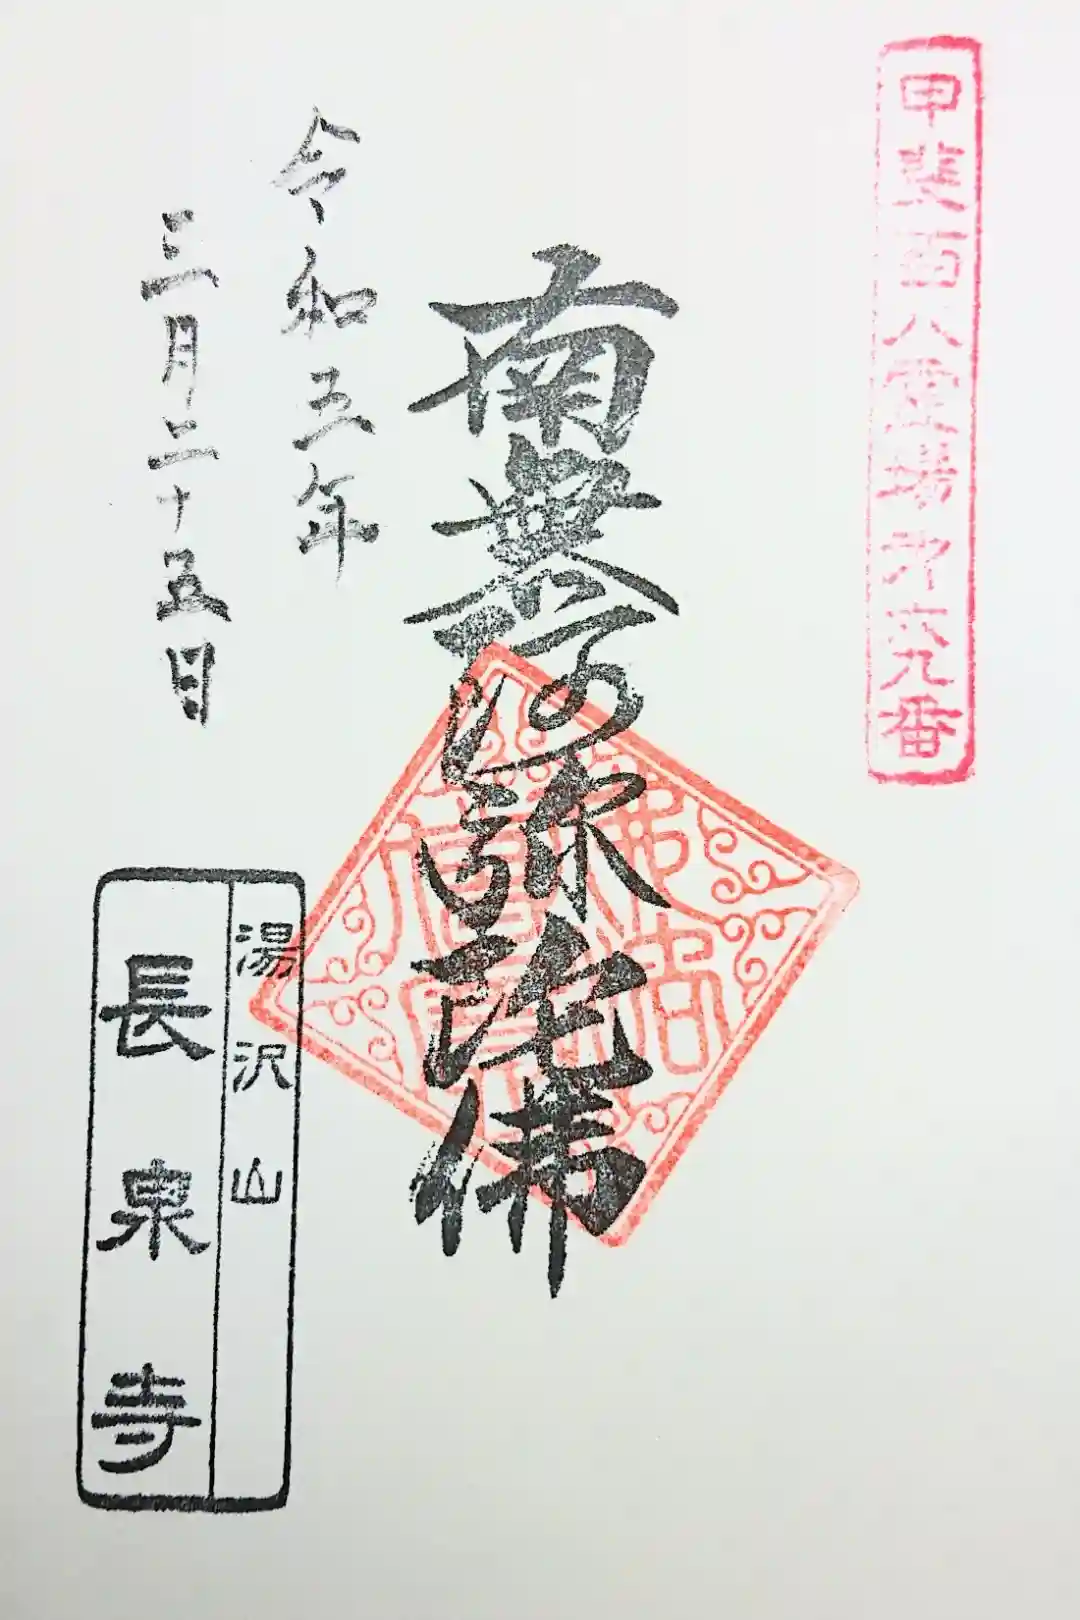 甲斐百八霊場第六九番
南無阿弥陀佛
令和五年
三月二十五日
湯沢山
長泉寺
佛法僧寳